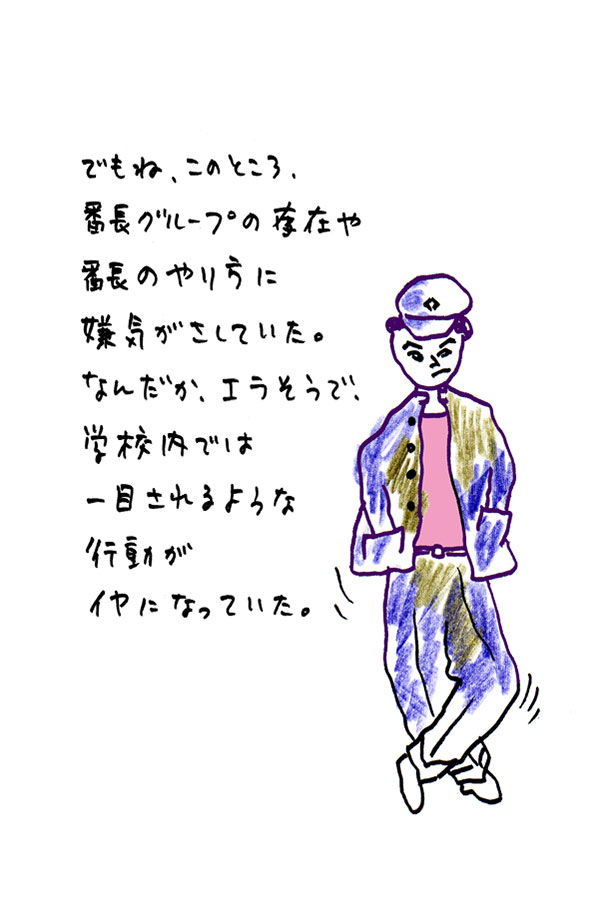 でもね、このところ、
番長グループの存在や
番長のやり方に
嫌気がさしていた。
なんだか、エラそうで、
学校内では
一目されるような
行動が
イヤになっていた。